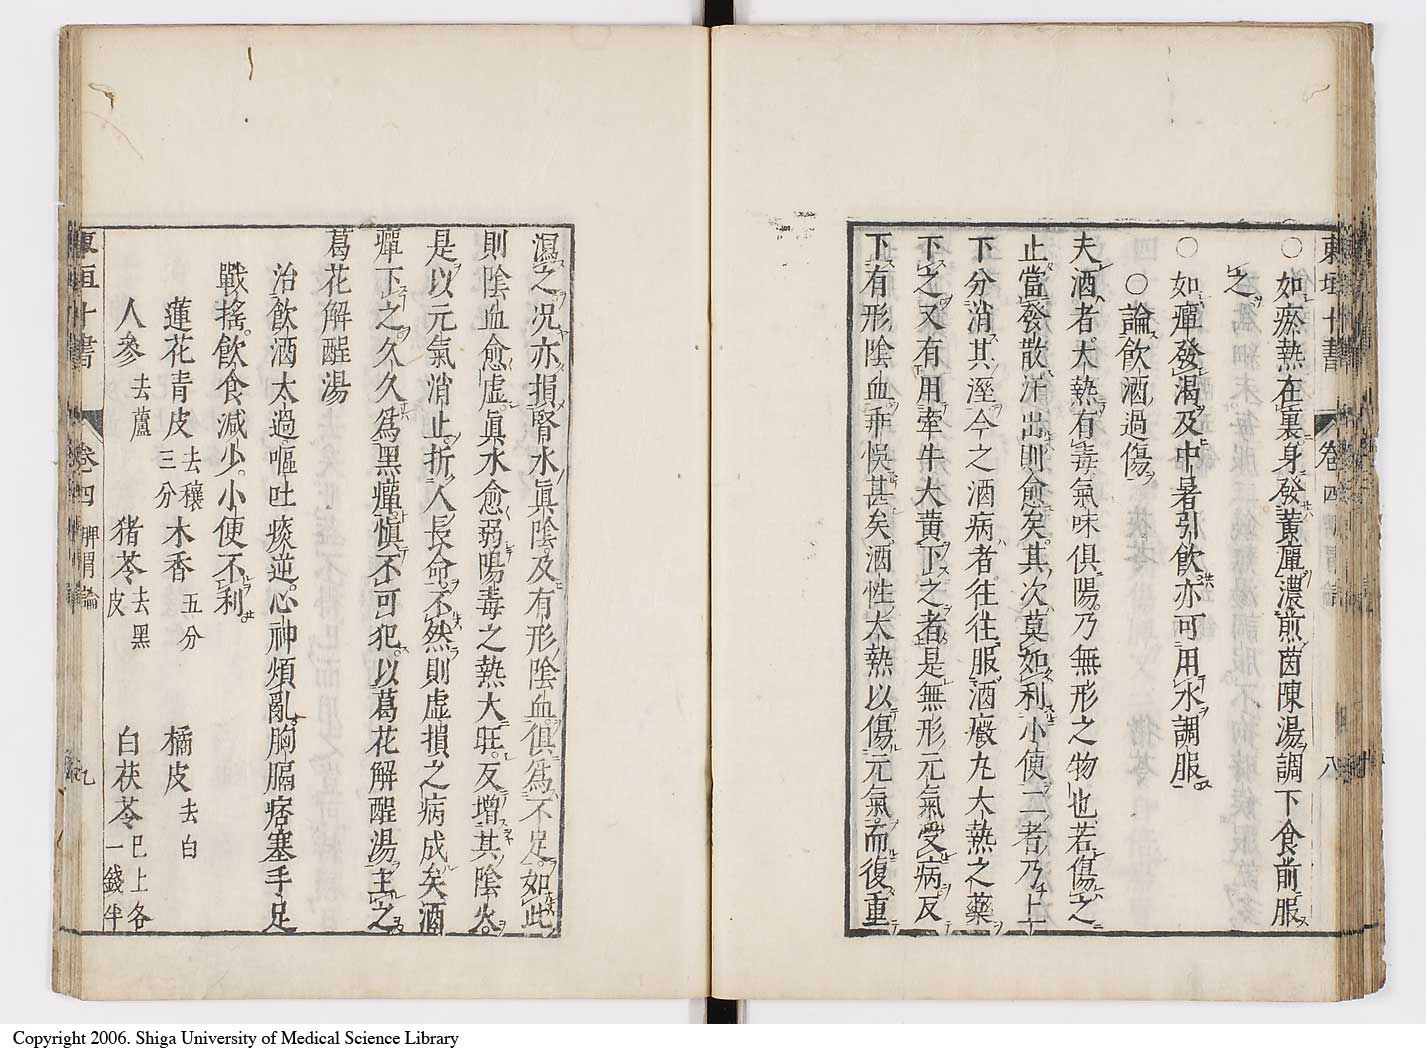 東垣十書
卷四
八
○如瘀熱在裏身發黃疸濃煎茵陳湯調下食前服
之
○如癉發渴及中暑引飲亦可用水調服
○論飲酒過傷
夫酒者大熱有毒氣味俱陽乃無形之物也若傷之
止當發散汗出則愈矣其次莫如利小便二者乃上
下分消其溼今之酒病者往往服酒癥丸大熱之藥
下之又有用牽牛大黃下之者是無形元氣受病反
下有形陰血乖悞甚矣酒性大熱以傷元氣而復重
瀉之况亦損腎水眞陰及有形陰血俱爲不足如此
則陰血愈虛眞水愈弱陽毒之熱大旺反增其陰火
是以元氣消止折人長命不然則虛損之病成矣酒
癉下之久久爲黑癉愼不可犯以葛花解酲湯主之
葛花解酲湯
治飲酒太過嘔吐痰逆心神煩亂胸膈痞塞手足
戰搖飲食減少小便不利
蓮花青皮去穰三分 木香五分 橘皮去白
人參去蘆 猪苓去黑皮 白茯苓已上各一錢半
東垣十書
卷四 脾胃論
Copyright 2006. Shiga University of Medical Science Library